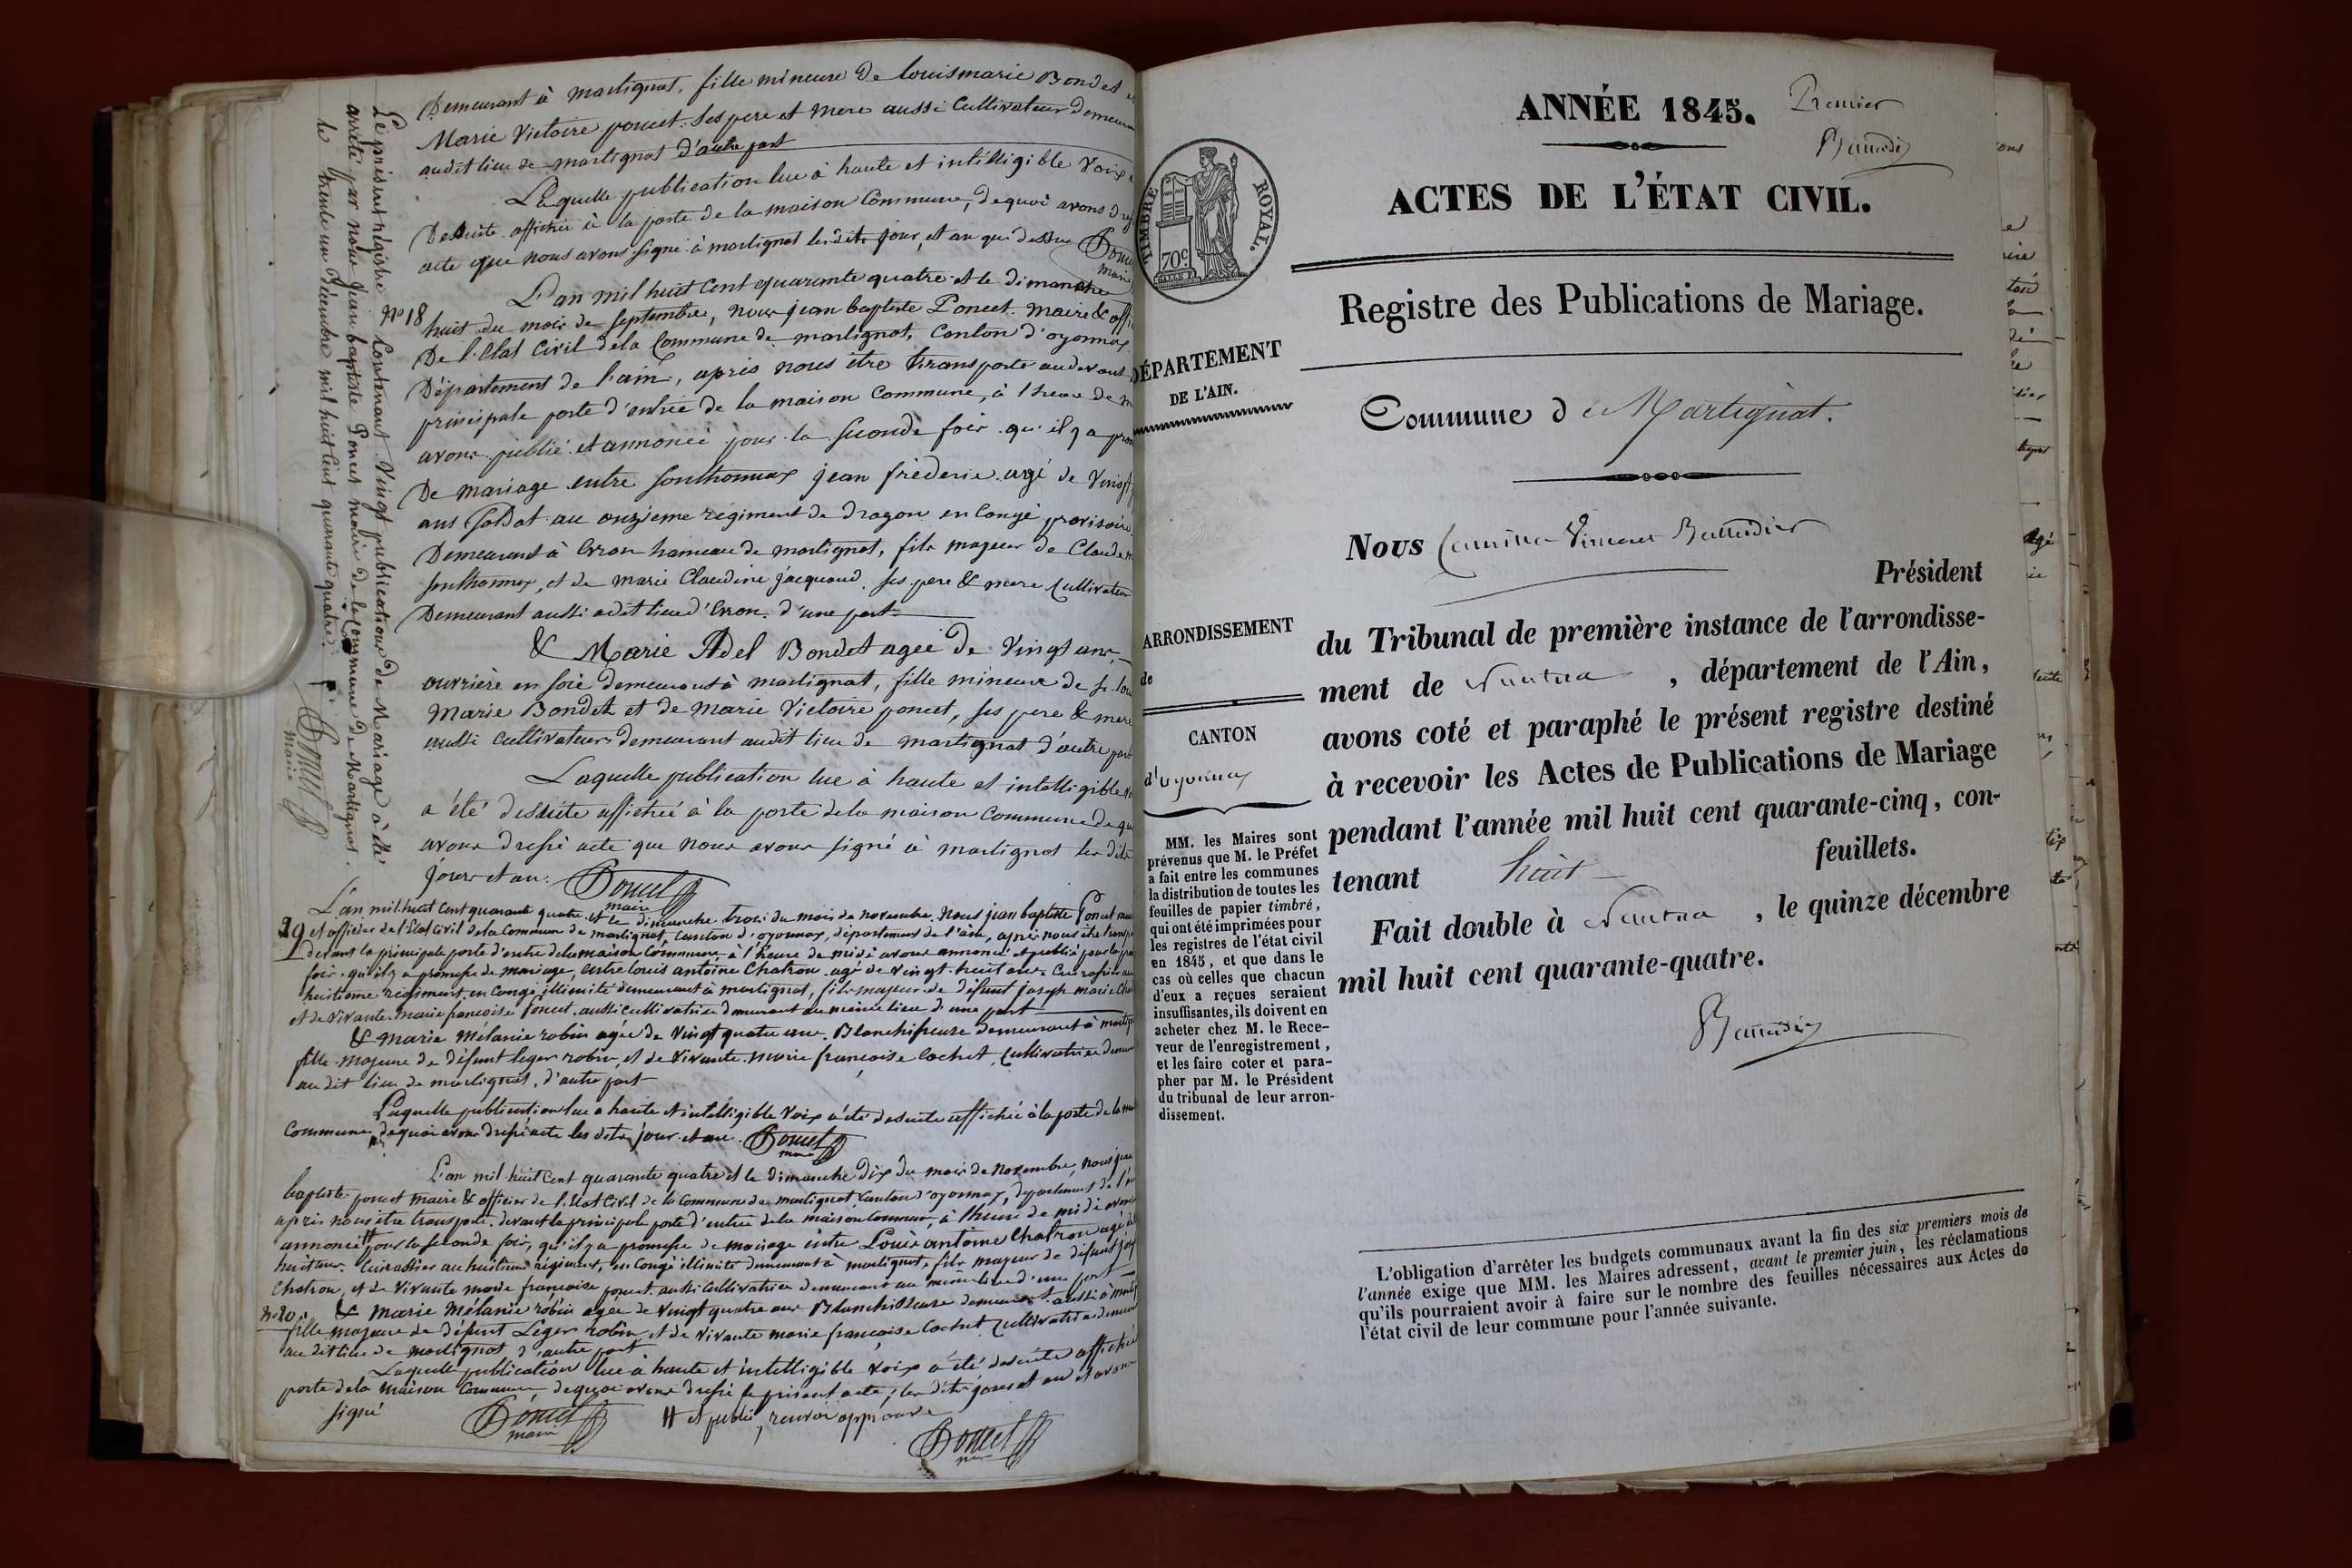 Demeurant à martignat, fille mineure de louis marie Bondet et
Marie Victoire poncet. Ses pere et mere aussi Cultivateur demeurant
audit lieu de martignat d'autre part
Laquelle publication lue à haute et intélligible Voix a
Desuite affichée à la porte de la maison Commune, dequoi avons
acte que nous avons signé à martignat lesdits jour, et an que dessus Poncet
maire
N° 18
L'an mil huit Cent quarante quatre et le dimanche
huit du mois de septembre, nous jean baptiste Poncet. maire & offi
De l'Etat Civil dela Commune de martignat, Canton d'oyonnax
Département de l'ain, après nous être transporté au devant
principale porte d'entrée de la maison Commune, à l'heure de
avons publié et annoncé pour la seconde fois qu'il y a prom
De mariage entre sonthonnax jean fréderic agé de Vingt
ans soldat au onzieme régiment de dragon en Congé provisoire
Demeurant à Evron hameau de martignat, fils majeur de Claude
sonthonnax, et de marie Claudine jacquand ses pere & mere Cultivateur
Demeurant aussi audit lieu d'Evron. d'une part
& Marie Adel Bondet agée de Vingt ans,
ouvrière en soie demeurant à martignat, fille mineure de
Marie Bondet et de marie Victoire poncet, ses pere & mere
aussi Cultivateurs demeurant audit lieu de martignat d'autre part
Laquelle publication lue à haute et intelligible
a été desuite affichée à la porte dela maison Commune de qu
avons dressé acte que nous avons signé à martignat les dits
jour et an. Poncet
maire
19
L'an mil huit Cent quarante quatre et le dimanche trois du mois de novembre. nous jean baptiste Poncet
et officier de l'Etat Civil dela Commune de martignat, Canton d'oyonnax, département de l'ain, après nous être transp
devant la principale porte d'entrée dela maison Commune, à l'heure de midi avons annoncé et publié pour la
fois. qu'il y a promesse de mariage, entre louis antoine Chatron agé de vingt-huit ans Cuirassier au
huitieme régiment en Congé illimité demeurant à martignat, fils majeur de défunt joseph marie Cha
et de Vivante marie francoise Poncet aussi Cultivatrice demeurant au même lieu d'une part
& marie Mélanie robin agée de Vingt quatre ans. Blanchisseuse demeurant à marti
fille majeure de défunt leger robin, et de Vivante marie françoise Cochet, Cultivatrice demeu
au dit lieu de martignat, d'autre part
Laquelle publication lue a haute et intelligible Voix a été desuite affichée à la porte de la
Commune, dequoi avons dressé acte les dits jour et an. Poncet
maire
L'an mil huit Cent quarante quatre et le dimanche dix du mois de Novembre, nous jean
baptiste poncet maire & officier de l'Etat Civil de la Commune de martignat Canton d'oyonnax, département de l'
après nous être transporté. devant la principale porte d'entrée dela maison Commune, à l'heure de midi avons
annoncé # pour la seconde fois, qu'il y a promesse de mariage entre Louis antoine Chatron agé de
huit ans. Cuirassier au huitieme régiment, en Congé illimité demeurant à martignat, fils majeur de défunt
Chatron, et de Vivante marie françoise poncet aussi Cultivatrice demeurant au même lieu d'une part
N° 20. & marie Mélanie robin agée de vingt quatre ans Blanchisseuse demeurant aussi à
fille majeure de défunt Léger robin, et de Vivante marie françoise Cochet Cultivatrice demeu
au dit lieu de martignat d'autre part
Laquelle publication lue à haute et intelligible voix a été desuite affichée
porte dela maison Commune, dequoi avons dressé le présent acte, les dits jour et an et avons
signé Poncet # et publié, renvoi approuvé
maire
Poncet
Le présent registre Contenant Vingt publications de Mariage a été
arrêté par nous Jean baptiste Poncet maire de la Commune de Martignat.
le trente un décembre mil huit Cent quarante quatre.
Poncet
maire
ANNÉE 1845.
Premier
ACTES DE L'ÉTAT CIVIL.
TIMBRE ROYAL.
70c
Registre des Publications de Mariage.
DÉPARTEMENT
DE L'AIN.
Commune de Martignat.
Nous
Président
ARRONDISSEMENT
de
du Tribunal de première instance de l'arrondisse-
ment de Nantua , département de l'Ain,
avons coté et paraphé le présent registre destiné
à recevoir les Actes de Publications de Mariage
pendant l'année mil huit cent quarante-cinq, con-
tenant huit feuillets.
Fait double à Nantua , le quinze décembre
mil huit cent quarante-quatre.
CANTON
d'oyonnax
MM. les Maires sont
prévenus que M. le Préfet
a fait entre les communes
la distribution de toutes les
feuilles de papier timbré,
qui ont été imprimées pour
les registres de l'état civil
en 1845, et que dans le
cas où celles que chacun
d'eux a reçues seraient
insuffisantes, ils doivent en
acheter chez M. le Rece-
veur de l'enregistrement,
et les faire coter et para-
pher par M. le Président
du tribunal de leur arron-
dissement.
L'obligation d'arrêter les budgets communaux avant la fin des six premiers mois de
l'année exige que MM. les Maires adressent, avant le premier juin, les réclamations
qu'ils pourraient avoir à faire sur le nombre des feuilles nécessaires aux Actes de
l'état civil de leur commune pour l'année suivante.